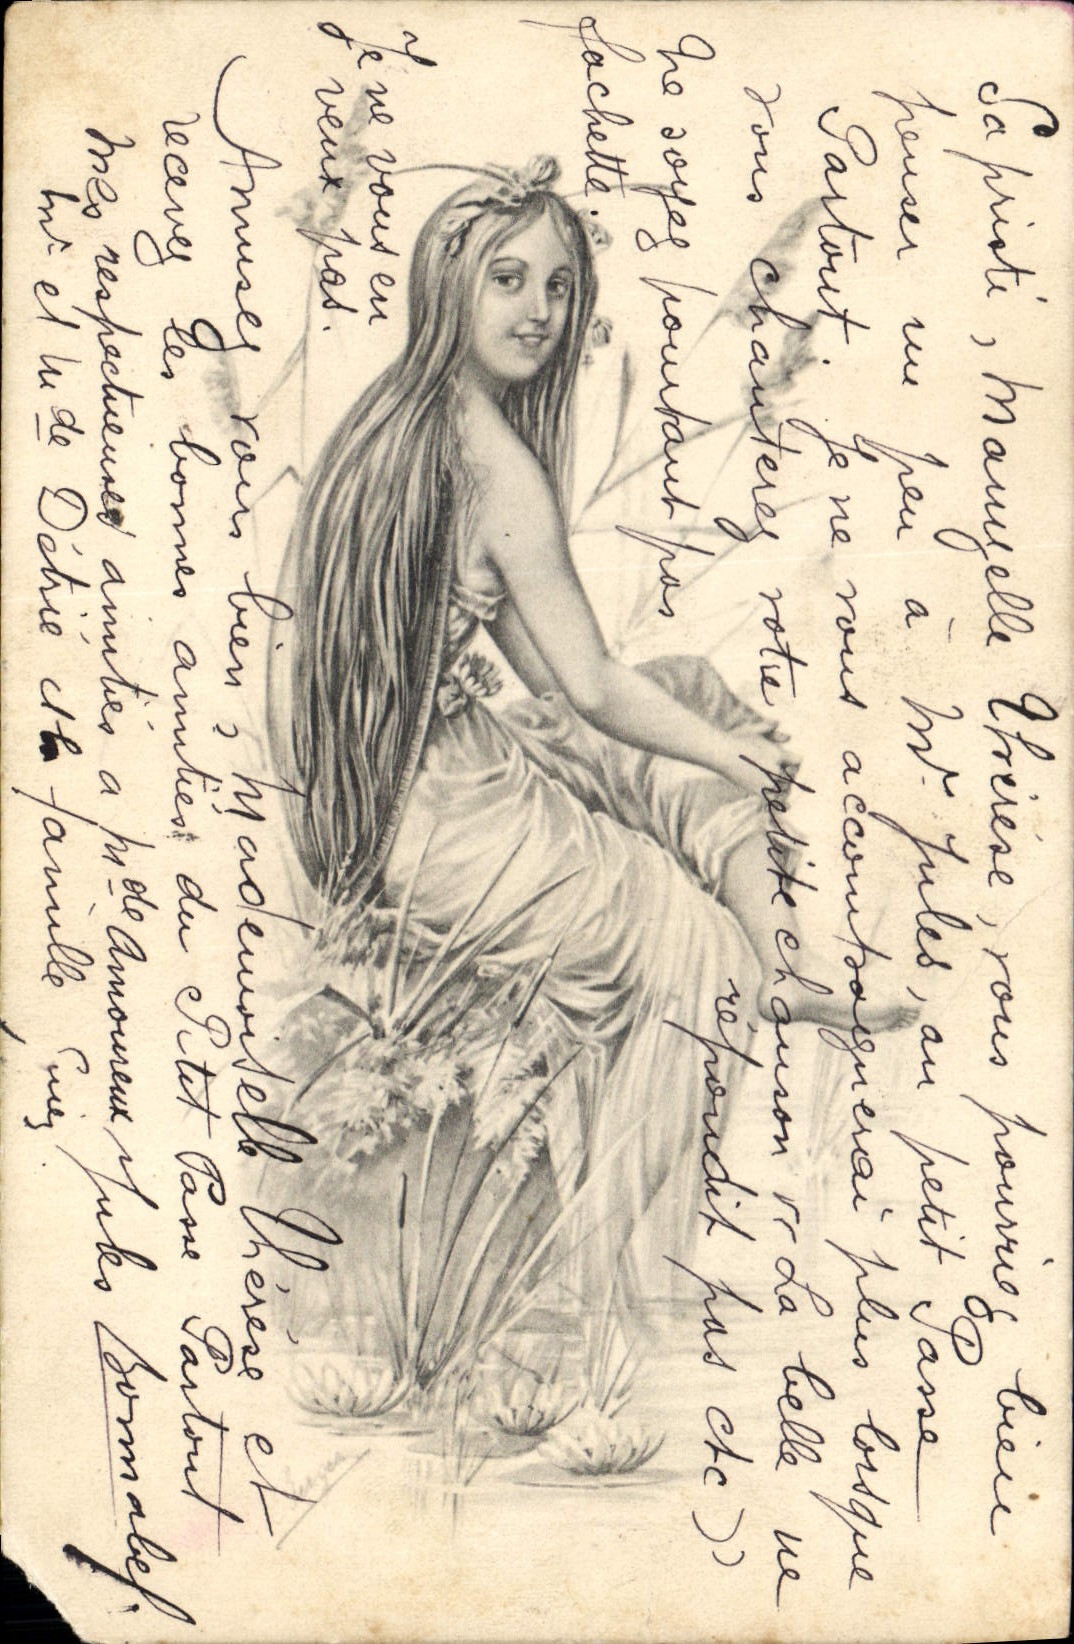 Sapristi, Mamzelle Thérèse, vous pourriez bien
penser un peu à Mr. Jules, au petit Passe
Partout. Je ne vous accompagnerai plus lorsque
vous chanterez votre petite chanson « La belle ne
répondit pas etc »
Ne soyez pourtant pas
fachette.
Je ne vous en
veux pas.
Amusez vous bien, Mademoiselle Thérèse et
recevez les bonnes amitiés du Petit Passe Partout
Mes respectueuses amitiés a Mde Amoureux, Jules Bonnabel.
Mr et Mde Détrie et famille